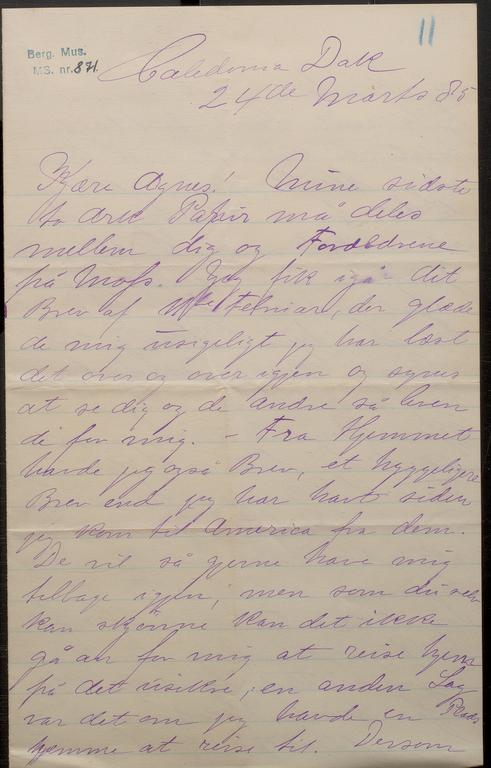 11
Berg. Mus.
MS. nr. 871.
Caledonia Dak
24de Marts 85
Kjære Agnes! Mine sidste
to Ark Papir må deles
mellem dig og Forældrene
på Moss. Jeg fik igår dit
Brev af Februar, der glæde
de mig usigeligt jeg har læst
det over og over igjen og synes
at se dig og de andre så leven
de for mig. – Fra Hjemmet
havde jeg også Brev, et hyggeligere
Brev end jeg har havt siden
jeg kom til America fra dem.
De vil så gjerne have mig
tilbage igjen; men som du selv
kan skjønne kan det ikke
gå an for mig at reise hjem
på det usikre; en anden Sag
var det om jeg havde en Plads
hjemme at reise til. Dersom